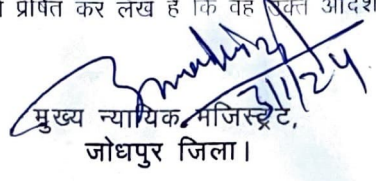 प्रेषित कर लेख है कि वह उक्त आदेश
3/1/24
मुख्य न्यायिक मजिस्ट्रेट,
जोधपुर जिला।